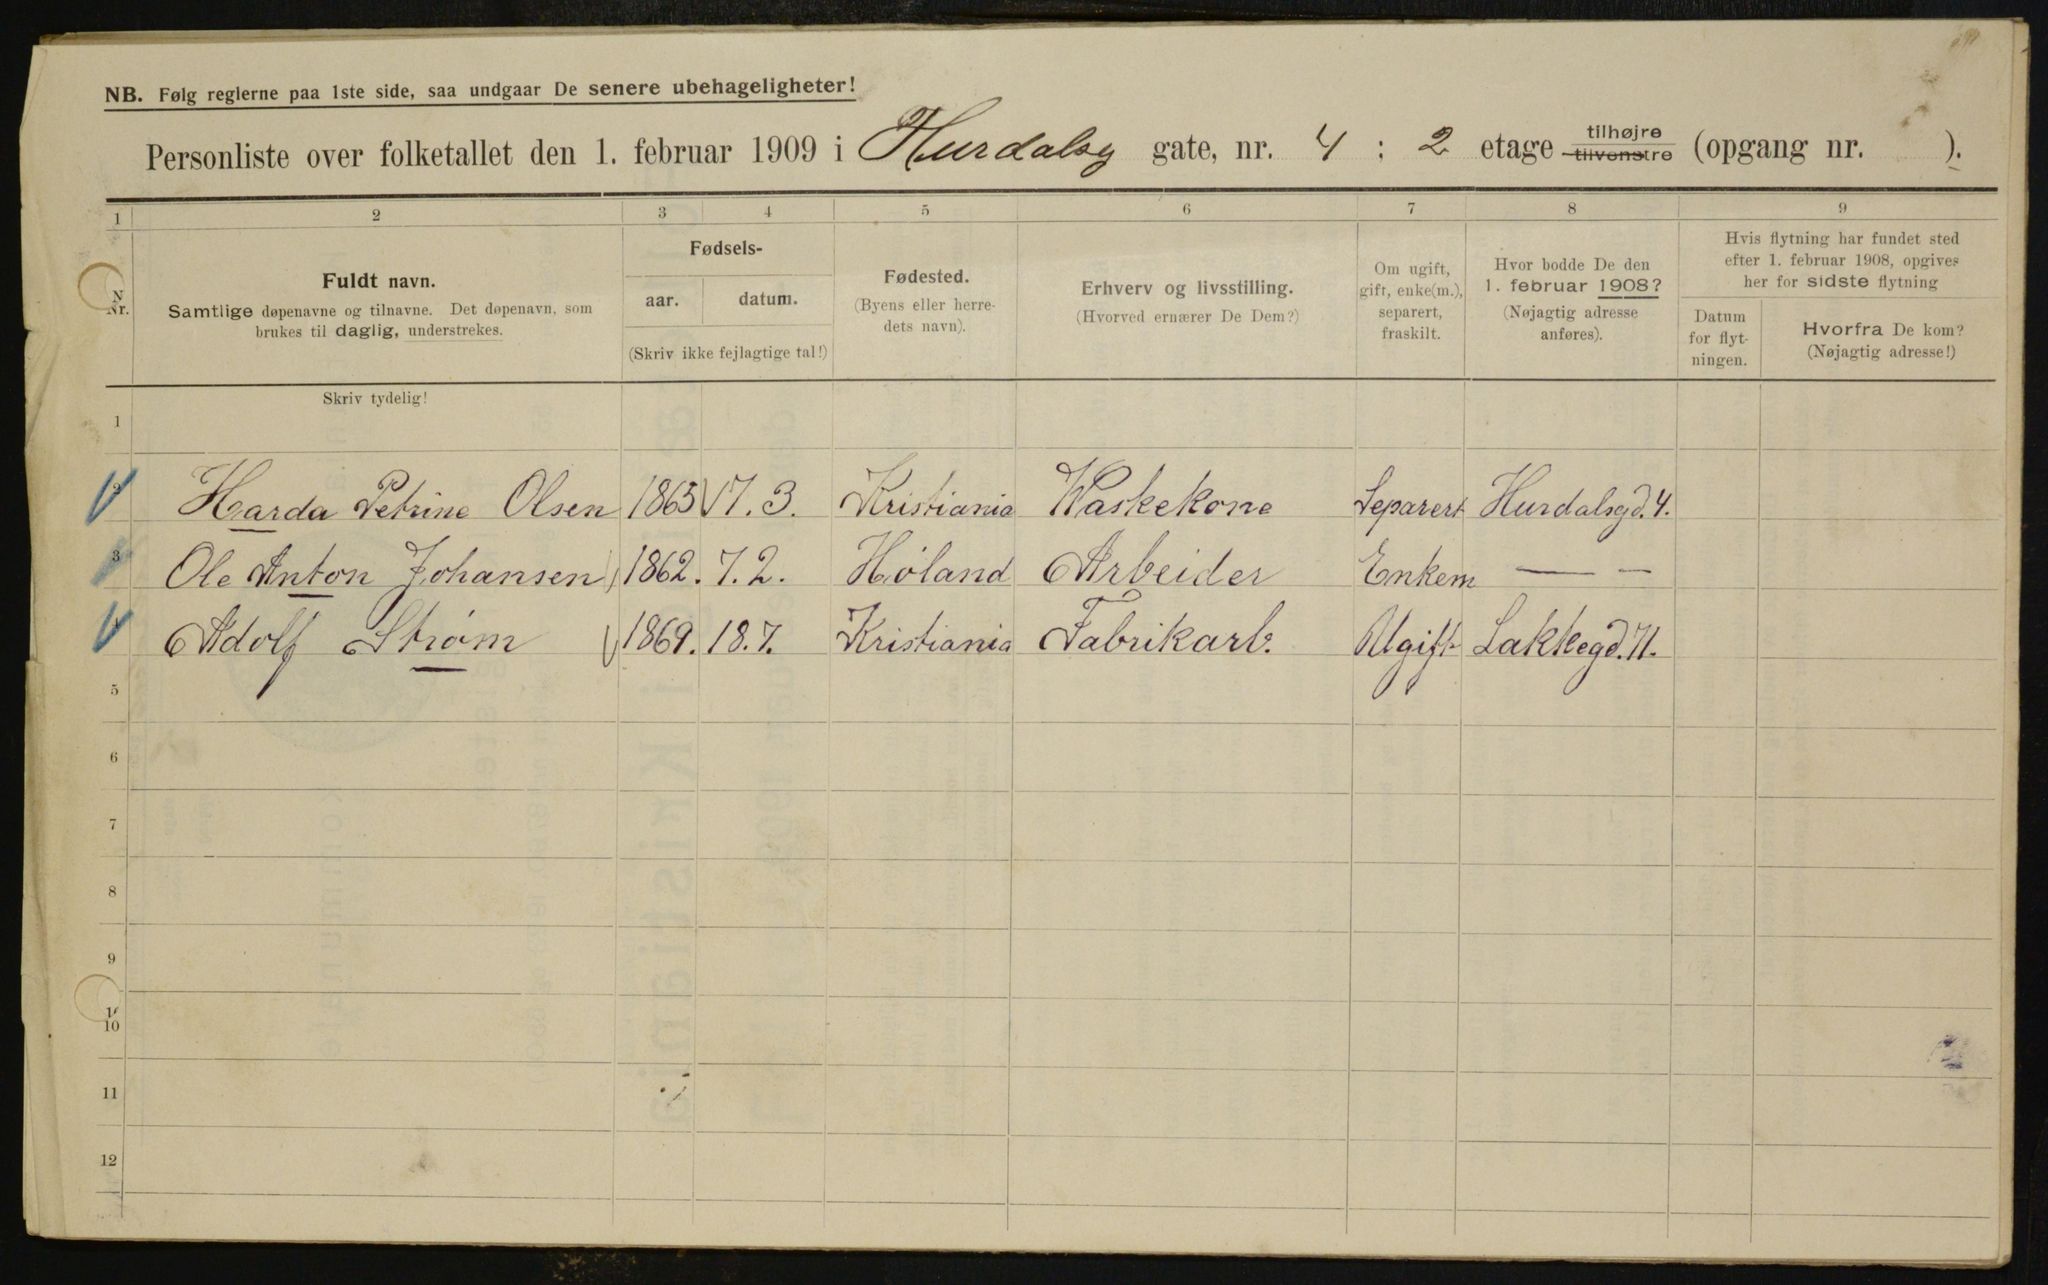 NB. Følg reglerne paa 1ste side, saa undgaar De senere ubehageligheter!
Personliste over folketallet den 1. februar 1909 i Hurdalsg gate, nr. 4 : 2 etage tilhøjre tilvenstre (opgang nr. ).
1 2 3 4 5 6 7 8 9
Nr.
Fuldt navn.
Samtlige døpenavne og tilnavne. Det døpenavn, som
brukes til daglig, understrekes.
Fødsels-
aar. datum.
(Skriv ikke fejlagtige tal!)
Fødested.
(Byens eller herre-
dets navn).
Erhverv og livsstilling.
(Hvorved ernærer De Dem?)
Om ugift,
gift, enke(m.),
separert,
fraskilt.
Hvor bodde De den
1. februar 1908?
(Nøjagtig adresse
anføres).
Hvis flytning har fundet sted
efter 1. februar 1908, opgives
her for sidste flytning
Datum
for flyt-
ningen.
Hvorfra De kom?
(Nøjagtig adresse!)
Skriv tydelig!
1
2 Harda Petrine Olsen 1865 17.3. Kristiania Waskekone Separert Hurdalsgd. 4.
3 Ole Anton Johansen 1862. 7.2. Høland Arbeider Enkem — –
4 Adolf Strøm 1869. 18.7. Kristiania Fabrikarb. Ugift Lakkegd. 71.
5
6
7
8
9
10
11
12